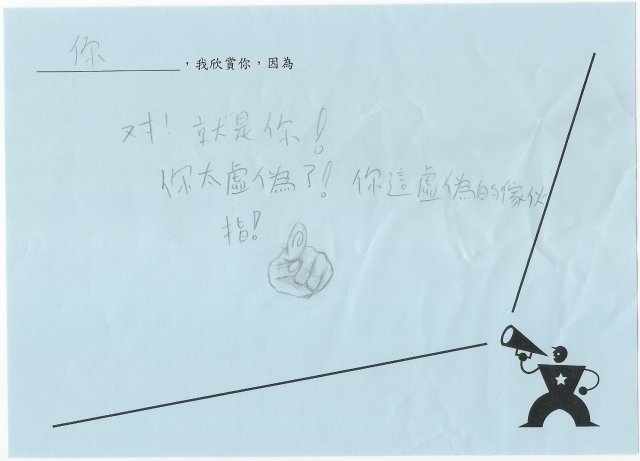 你，我欣賞你，因為
对！就是你！
你太虛偽了！你這虛偽的傢伙
指！